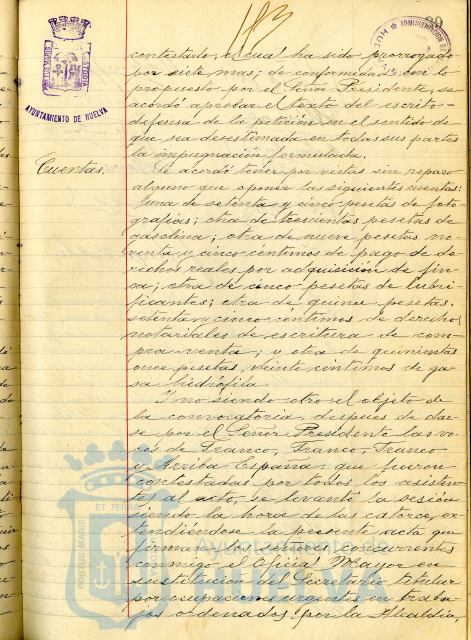 183
89
AYUNTAMIENTO DE HUELVA
ADMINISTRACION DE
contestarlo, el cual ha sido prorrogado
por siete mas; de conformidad con lo
propuesto por el Señor Presidente, se
acordó aprobar el texto del escrito-
defensa de la petición en el sentido de
que sea desestimada en todas sus partes
la impugnación formulada.
Cuentas.
Se acordó tener por vistas sin reparo
alguno que oponer las siguientes cuentas:
una de setenta y cinco pesetas de foto-
grafias; otra de trescientas pesetas de
gasolina; otra de nueve pesetas no-
venta y cinco céntimos de pago de de-
rechos reales por adquisición de fin-
ca; otra de cinco pesetas de lubri-
ficantes; otra de quince pesetas,
setenta y cinco céntimos de derechos
notariales de escritura de com-
pra venta; y otra de quinientas
once pesetas, veinte céntimos de ga-
sa hidrófila.
Y no siendo otro el objeto de
la convocatoria, despues de dar-
se por el Señor Presidente las vo-
ces de Franco, Franco, Franco
y Arriba España que fueron
contestadas por todos los asisten-
tes al acto, se levantó la sesión
siendo la hora de las catorce, ex-
tendiéndose la presente acta que
firman los señores concurrentes
conmigo el Oficial Mayor en
sustitución del Secretario titular
por ocupaciones urgentes en traba-
jos ordenados por la Alcaldia,
PORTUS MARIS ET TERRAE
Ayuntamiento de
HUELVA